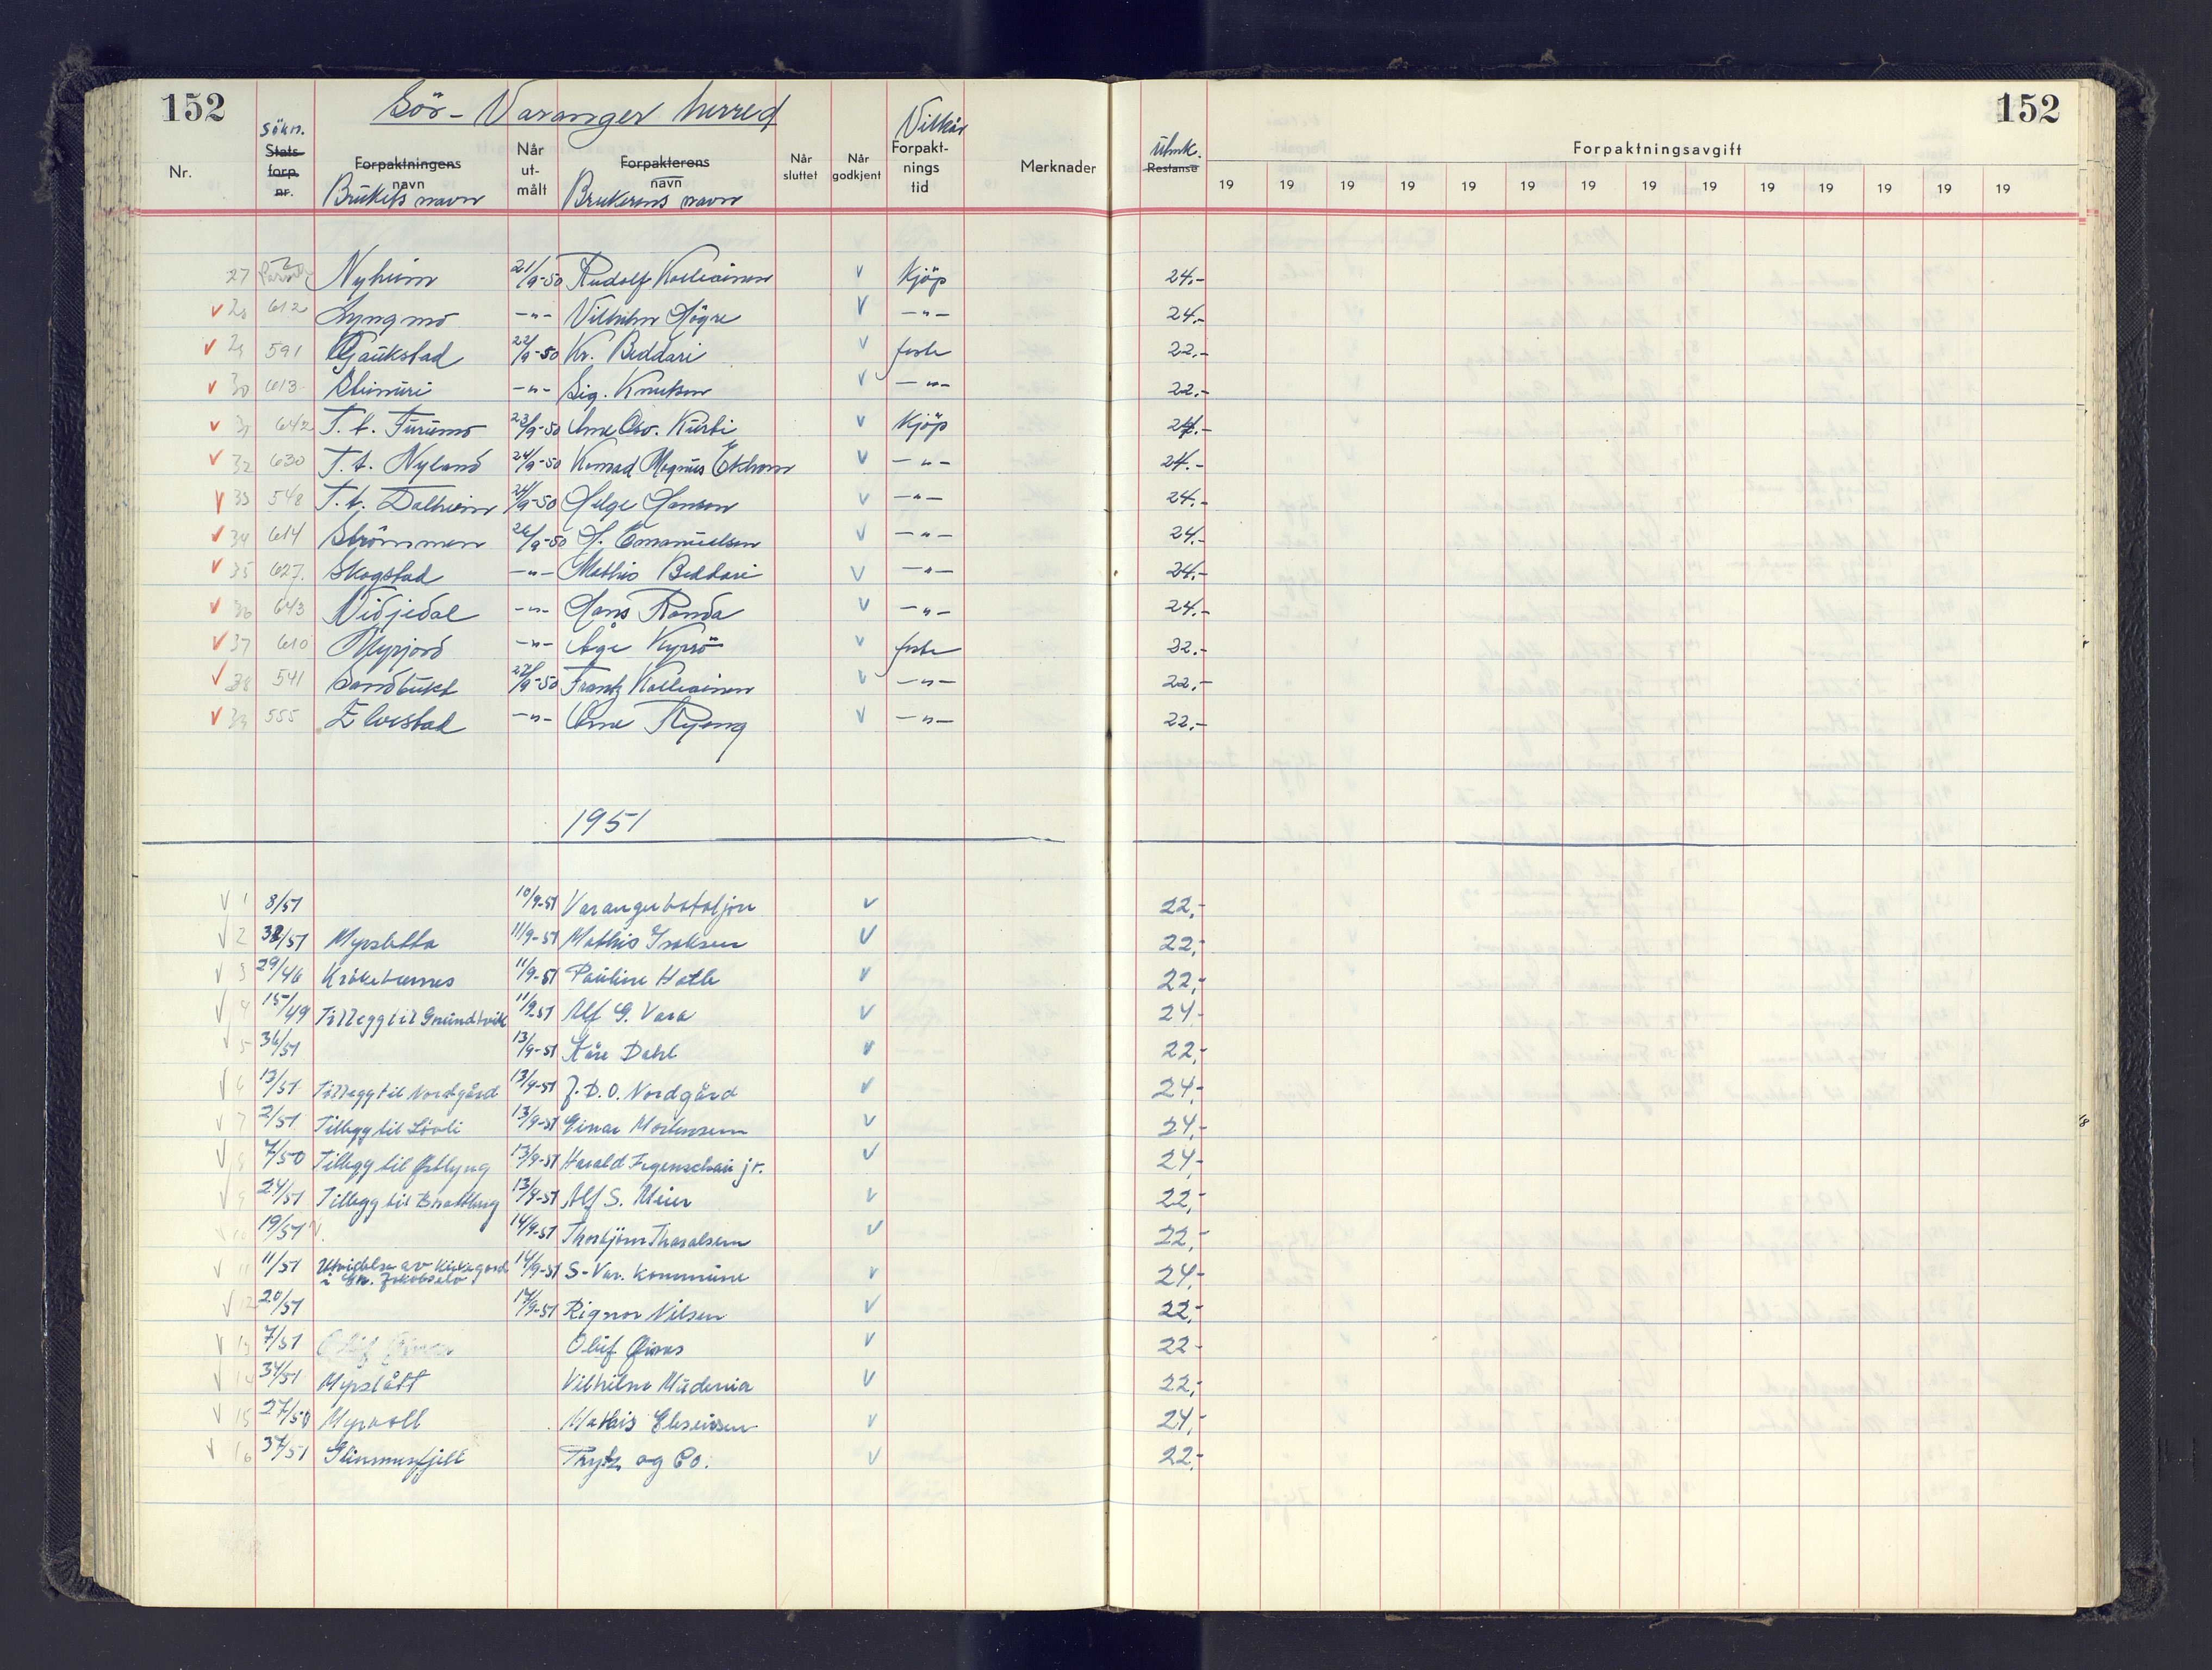 152
Sör-Varanger herred
152
Nr.
Sökn.
Stats-
forp.
nr.
Forpaktningens
navn
Brukets navn
Når
ut-
målt
Forpakterens
navn
Brukerens navn
Når
sluttet
Når
godkjent
Vilkår
Forpakt-
nings
tid
Merknader
Utmk.
Restanse
Forpaktningsavgift
19 19 19 19 19 19 19 19 19 19 19 19 19 19
27 Nyheim 21/9-50 Rudolf Kalliainen v Kjöp 24.-
v 28 612 Lyngmo -"- Vilhelm Högre v -"- 24.-
v 29 591 Gaukstad 22/9-50 Kr. Beddari v feste 22.-
v 30 613 -"- Sig. Knutsen v -"- 22.-
v 31 642 T.t. Furumo 23/9-50 Arne Osv. Kurti v Kjöp 24.-
v 32 630 T.t. Nyland 24/9-50 Konrad Magnus Ekhorn v -"- 24.-
v 33 548 T.t. Dalheim 24/9-50 Helge Hansen v -"- 24.-
v 34 614 Strömmen 26/9-50 H. Emanuelsen v -"- 24.-
v 35 627 Skogstad -"- Mathis Beddari v -"- 24.-
v 36 643 Nidjedal -"- Hans Randa v -"- 24.-
v 37 610 Myrjord -"- Åge Kyrrö v feste 22.-
v 38 541 Sandbukt 27/9-50 Frantz Kalliainen v -"- 22.-
v 39 555 Elvestad -"- Arne Ryeng v -"- 22.-
1951
v 1 8/51 10/9-51 Varangerbataljon v 22,-
v 2 38/51 Myrsletta 11/9-51 Mathis Isaksen v 22,-
v 3 29/46 Kråkebærnes 11/9-51 Pauline Hatle v 22,-
v 4 15/49 Tillegg til Grundtvik 11/9-51 Alf G. Vara v 24.-
v 5 36/51 13/9-51 Kåre Dahl v 22,-
v 6 13/51 Tillegg til Nordgård 13/9-51 J.D.O. Nordgård v 24,-
v 7 2/51 Tillegg til Lövli 13/9-51 Einar Mortensen v 24,-
v 8 7/50 Tillegg til Østlyng 13/9-51 Harald Figenschau jr. v 24-
v 9 24/51 Tillegg til Brattberg 13/9-51 Alf S. Meier v 22,-
v 10 19/51 14/9-51 Thorbjörn Tharalsen v 22,-
v 11 11/51 Utvidelse av kirkegård
i Gr. Jakobselv 14/9-51 S-Var. kommune v 24,-
v 12 20/51 17/9-51 Rignor Nilsen v 22,-
v 13 7/51 Oluf Øines v 22-
v 14 34/51 Myrslått Vilhelm Mudenia v 22,-
v 15 27/50 Myrvoll Mathis Eliseussen v 24,-
v 16 37/51 Thyts og Co. v 22,-